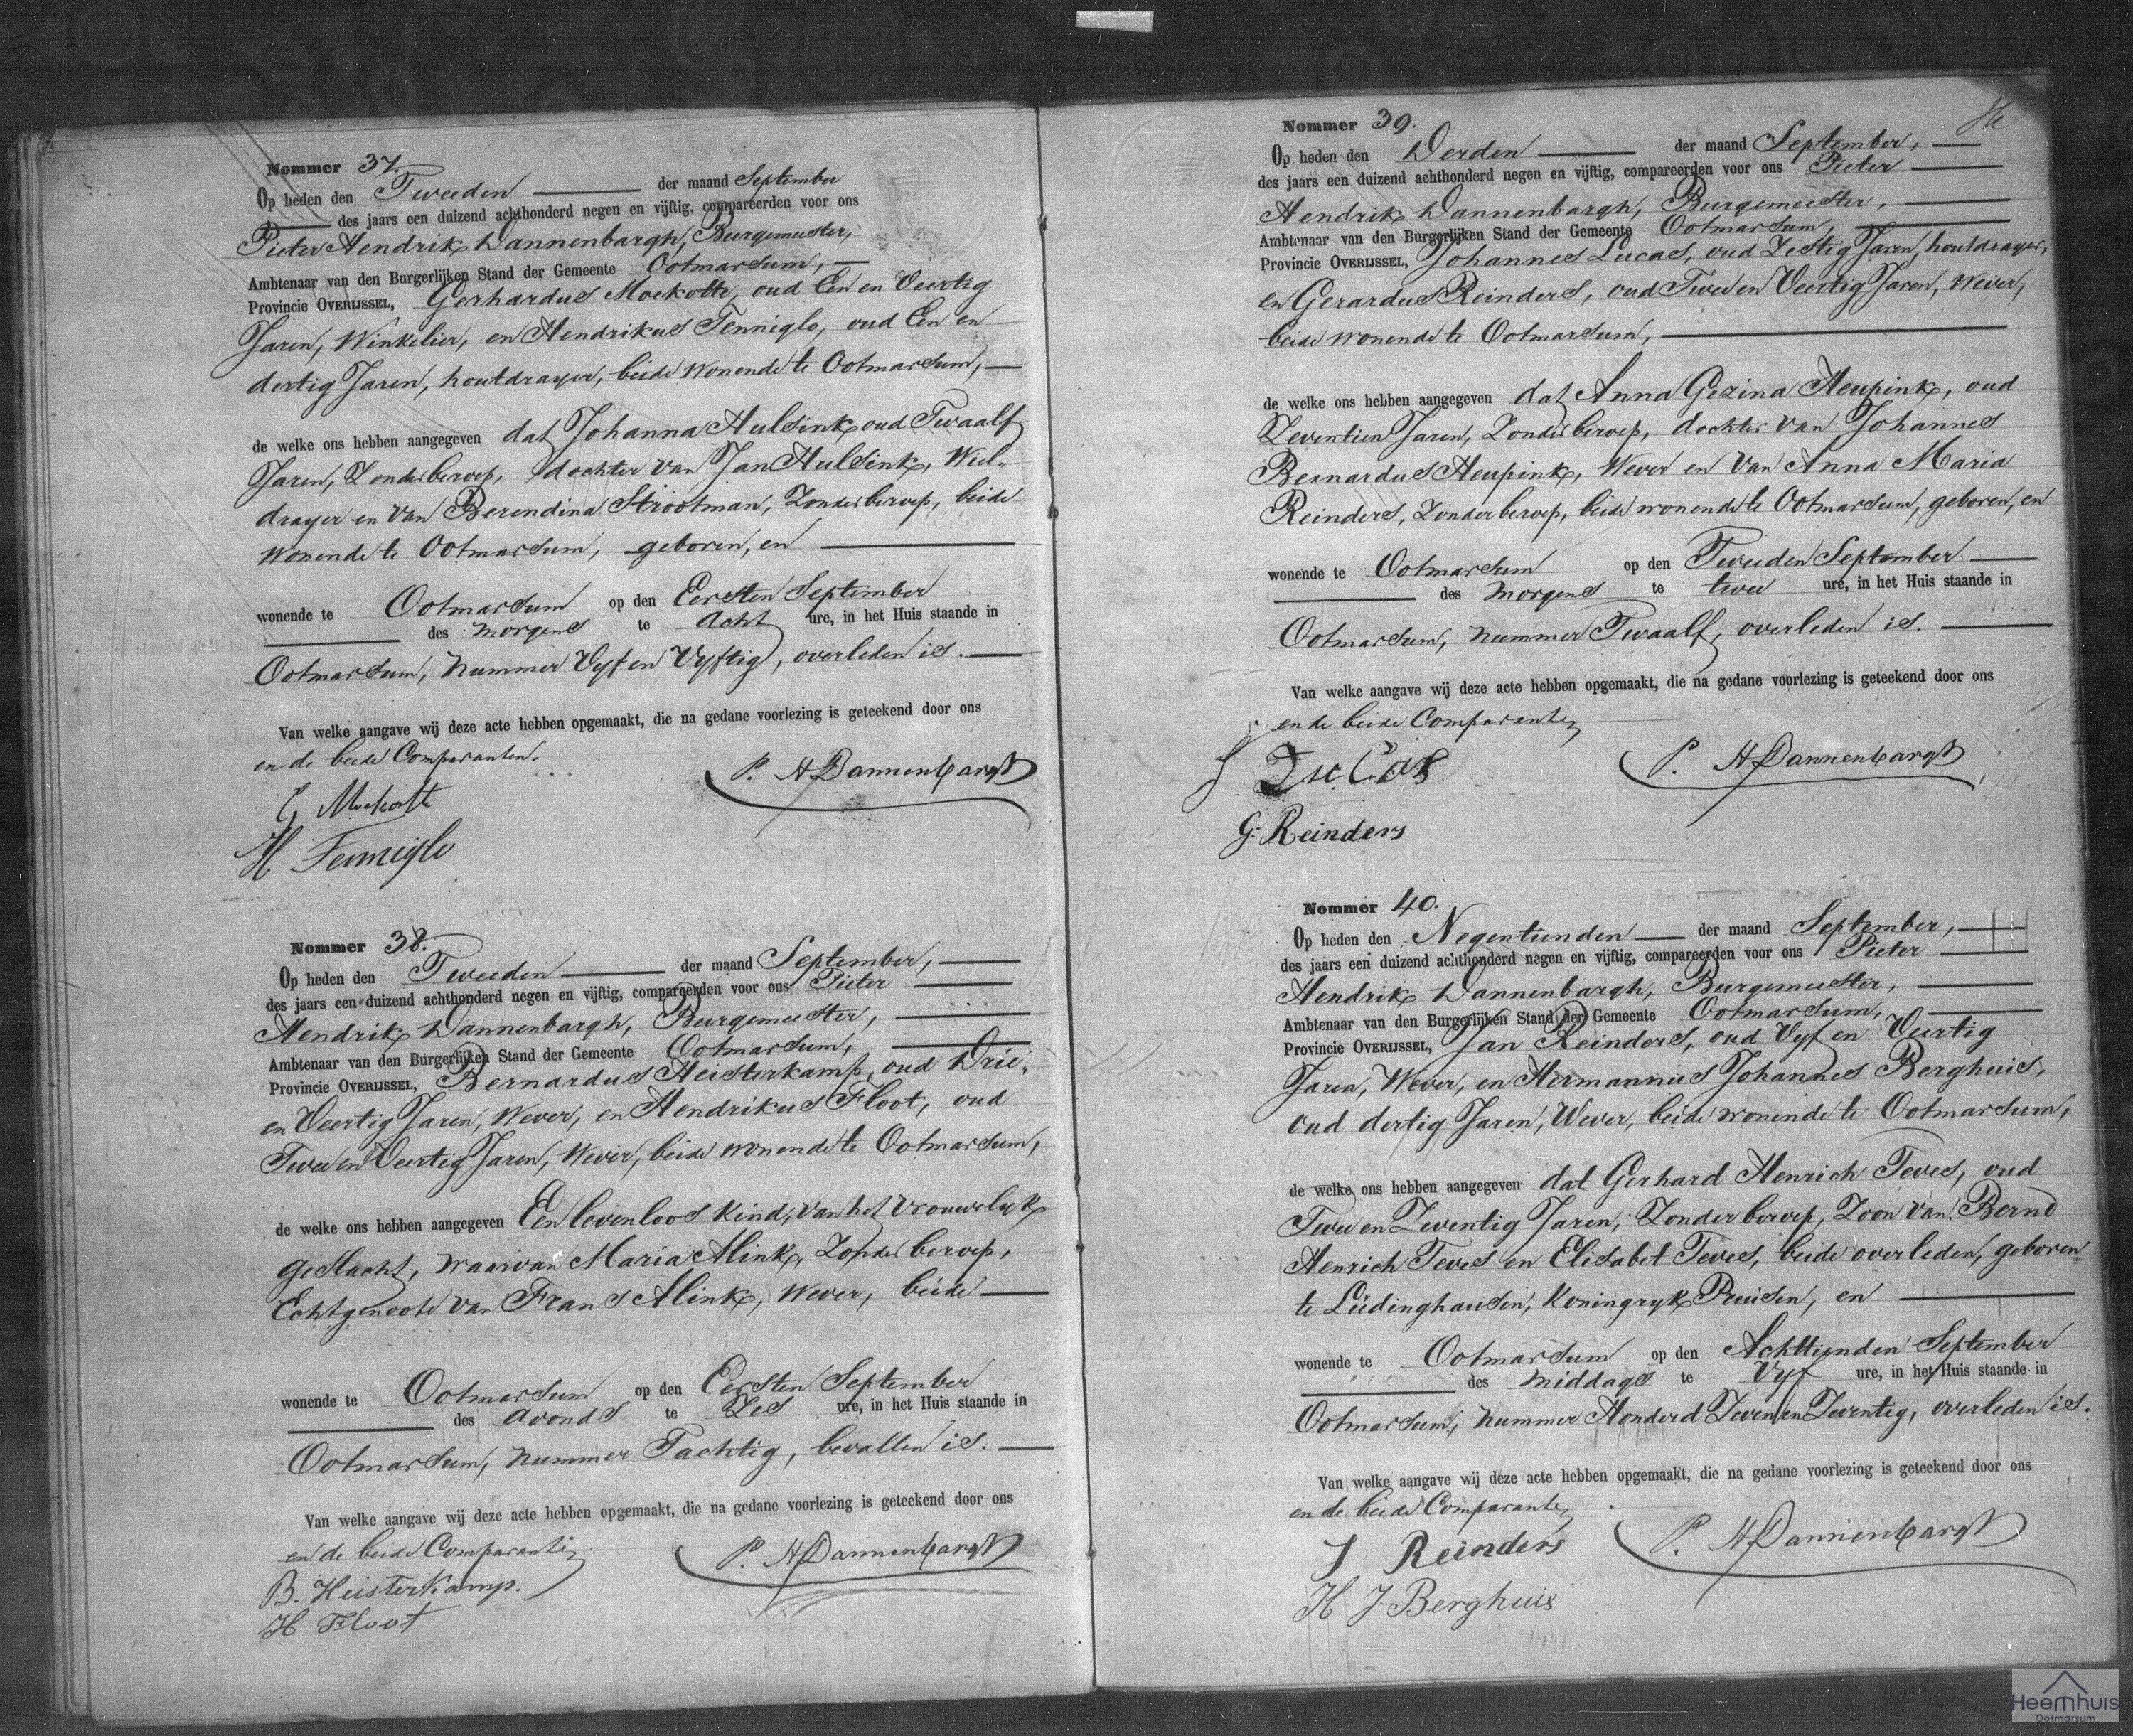 Nommer 37.
Op heden den Tweeden der maand September
des jaars een duizend achthonderd negen en vijftig, compareerden voor ons
Pieter Hendrik Dannenbargh, Burgemeester,
Ambtenaar van den Burgerlijken Stand der Gemeente Ootmarsum,
Provincie OVERIJSSEL, Gerhardus Moekotte, oud Een en Veertig
Jaren, Winkelier, en Hendrikus Tenniglo, oud Een en
dertig Jaren, houtdrayer, beide wonende te Ootmarsum,
de welke ons hebben aangegeven dat Johanna Hulsink oud Twaalf
Jaren, Zonder beroep, dochter van Jan Hulsink, Wiel-
drayer en van Berendina Strootman, Zonder beroep, beide
wonende te Ootmarsum, geboren, en
wonende te Ootmarsum op den Eersten September
des morgens te Acht ure, in het Huis staande in
Ootmarsum, nummer Vyf en Vyftig, overleden is.
Van welke aangave wij deze acte hebben opgemaakt, die na gedane voorlezing is geteekend door ons
en de beide Comparanten.
P. H Dannenbargh
G Moekotte
H Tenniglo
Nommer 38.
Op heden den Tweeden der maand September,
des jaars een duizend achthonderd negen en vijftig, compareerden voor ons Pieter
Hendrik Dannenbargh, Burgemeester,
Ambtenaar van den Burgerlijken Stand der Gemeente Ootmarsum,
Provincie OVERIJSSEL, Bernardus Heisterkamp, oud Drie
en Veertig Jaren, Wever, en Hendrikus Floot, oud
Twee en Veertig Jaren, Wever, beide wonende te Ootmarsum,
de welke ons hebben aangegeven Een levenloos kind, van het vrouwelyk
geslacht, waarvan Maria Alink, Zonder beroep,
Echtgenoote van Frans Alink, Wever, beide
wonende te Ootmarsum op den Eersten September
des avonds te Zes ure, in het Huis staande in
Ootmarsum, nummer Tachtig, bevallen is.
Van welke aangave wij deze acte hebben opgemaakt, die na gedane voorlezing is geteekend door ons
en de beide Comparanten
P. H Dannenbargh
B. Heisterkamp.
H Floot
Nommer 39.
Op heden den Derden der maand September,
des jaars een duizend achthonderd negen en vijftig, compareerden voor ons Pieter
Hendrik Dannenbargh, Burgemeester,
Ambtenaar van den Burgerlijken Stand der Gemeente Ootmarsum,
Provincie OVERIJSSEL, Johannes Lucas, oud Zestig Jaren, houtdrayer,
en Gerardus Reinders, oud Twee en Veertig Jaren, Wever,
beide wonende te Ootmarsum,
de welke ons hebben aangegeven dat Anna Gezina Heupink, oud
Zeventien Jaren, Zonder beroep, dochter van Johannes
Bernardus Heupink, Wever en van Anna Maria
Reinders, Zonder beroep, beide wonende te Ootmarsum, geboren, en
wonende te Ootmarsum op den Tweeden September
des morgens te twee ure, in het Huis staande in
Ootmarsum, nummer Twaalf, overleden is.
Van welke aangave wij deze acte hebben opgemaakt, die na gedane voorlezing is geteekend door ons
en de beide Comparanten
P. H Dannenbargh
J Lucas
G: Reinders
Nommer 40.
Op heden den Negentienden der maand September,
des jaars een duizend achthonderd negen en vijftig, compareerden voor ons Pieter
Hendrik Dannenbargh, Burgemeester,
Ambtenaar van den Burgerlijken Stand der Gemeente Ootmarsum,
Provincie OVERIJSSEL, Jan Reinders, oud Vyf en Veertig
Jaren, Wever, en Hermannus Johannes Berghuis,
oud dertig Jaren, Wever, beide wonende te Ootmarsum,
de welke ons hebben aangegeven dat Gerhard Henrich Teves, oud
Twee en Zeventig Jaren, Zonder beroep, Zoon van Bernd
Henrich Teves en Elisabet Teves, beide overleden, geboren
te Lüdinghausen, Koningryk Pruisen, en
wonende te Ootmarsum op den Achttienden September
des middags te Vyf ure, in het Huis staande in
Ootmarsum, nummer Honderd Zeven en Zeventig, overleden is.
Van welke aangave wij deze acte hebben opgemaakt, die na gedane voorlezing is geteekend door ons
en de beide Comparanten
P. H Dannenbargh
J Reinders
H J Berghuis
Heemhuis
Ootmarsum